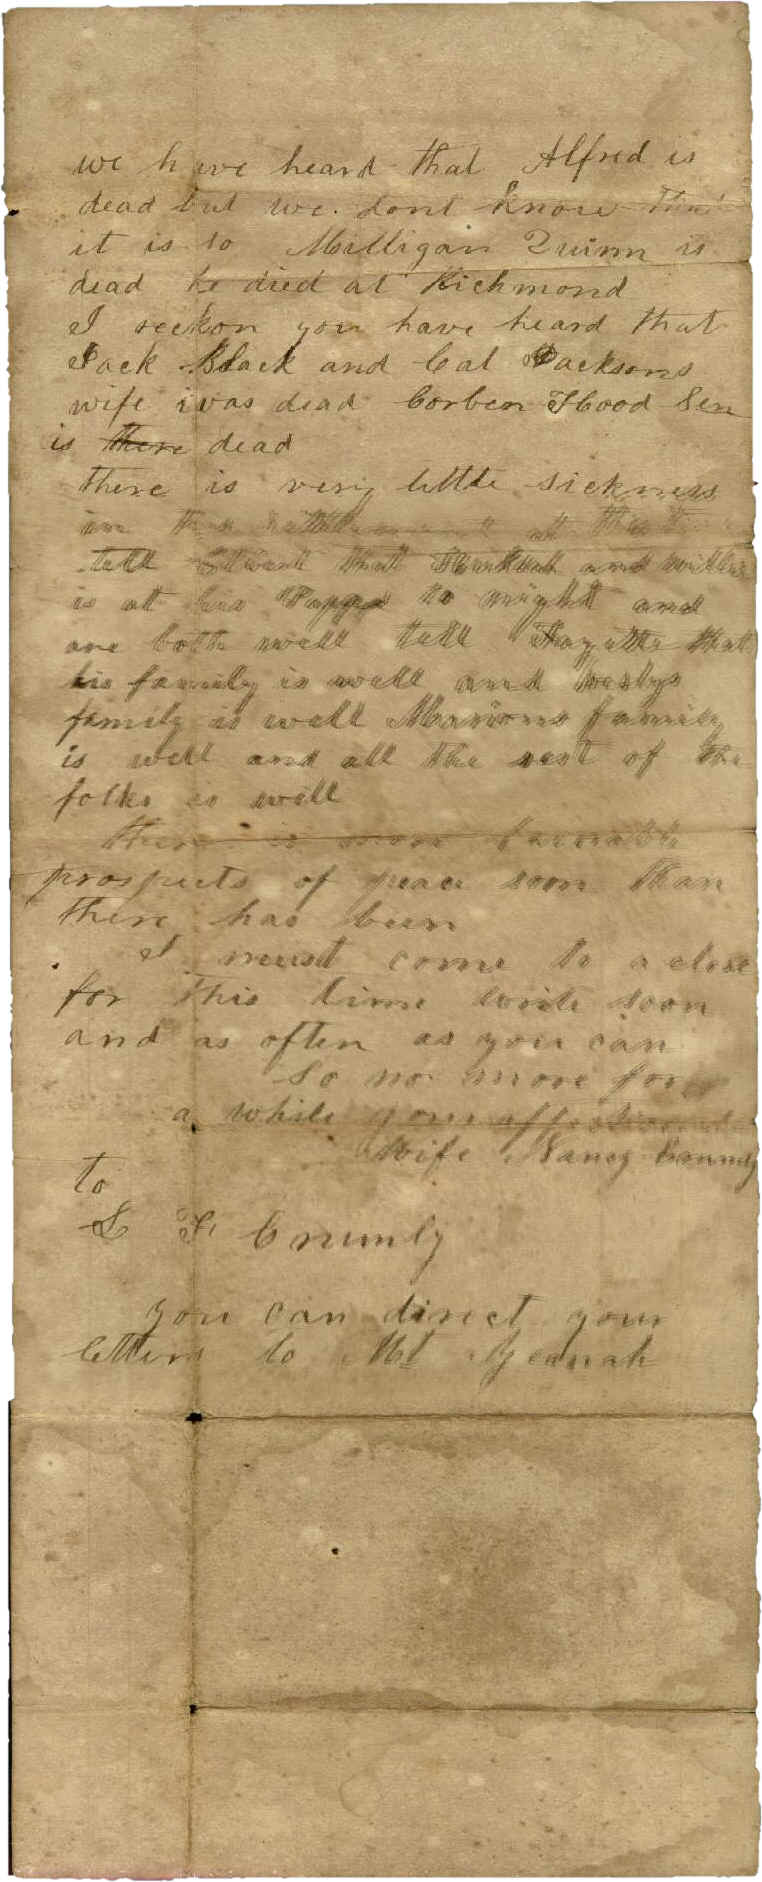 we have heard that Alfred is
dead but we dont know that
it is so Milligan Quinn is
dead he died at Richmond
I reckon you have heard that
Jack Black and Cal Jacksons
wife was dead Corben Hood Sen
is there dead
there is very little sickness
in this at this
tell that and
is at his Pappys to night and
are both well tell Fayette that
his family is well and Wesleys
family is well Marions family
is well and all the rest of the
folks is well
there is more
prospects of peace soon than
there has been
I must come to a close
for this time write soon
and as often as you can
So no more for
a while your affectionate
wife Nancy Crumly
to
L F Crumly
you can direct your
letters to Mt